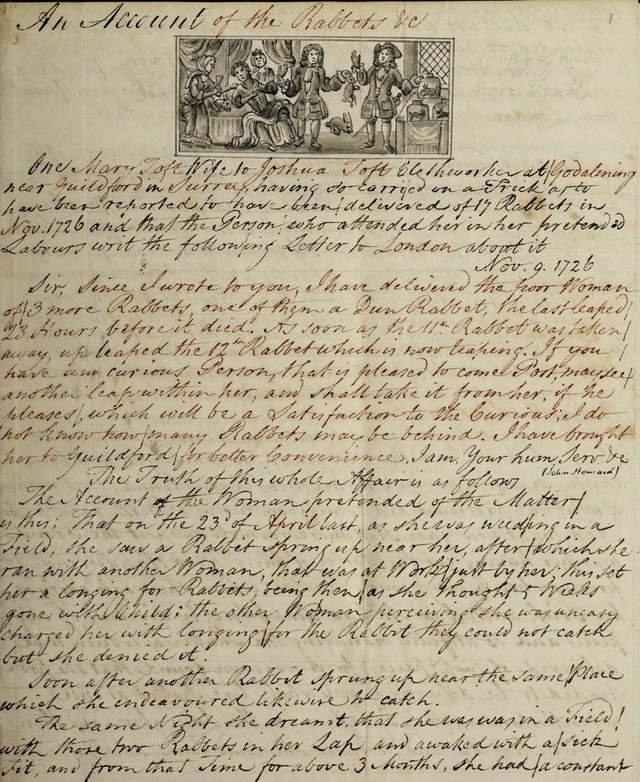 An Account of the Rabbets &c
1
One Mary Toft Wife to Joshua Toft Clothworker at Godalming
near Guildford in Surrey, having so carried on a Trick as to
have been reported to have been delivered of 17 Rabbets in
Nov. 1726 and that the Person, who attended her in her pretended
Labours writ the following Letter to London about it
Nov. 9. 1726
Sir, Since I wrote to you, I have delivered the poor Woman
of 3 more Rabbets, one of them a Dun Rabbet, the last leaped
23 Hours before it died. As soon as the 11th Rabbet was taken
away, up leaped the 12th Rabbet which is now leaping. If you
have any curious Person, that is pleased to come Post, may see
another leap within her, and shall take it from her, if he
pleases, which will be a Satisfaction to the Curious; I do
not know how many Rabbets may be behind. I have brought
her to Guildford for better Convenience. I am, Your hum. Serv. &c
(John Howard)
The Truth of this whole Affair is as follows
The Account of the Woman pretended of the Matter
is this; That on the 23d of April last, as she was weeding in a
Field, she saw a Rabbit spring up near her, after which she
ran with another Woman, that was at Work just by her; this set
her a longing for Rabbits, being then as she thought 5 Weeks
gone with Child; the other Woman perceiving she was uneasy
charged her with longing for the Rabbit they could not catch
but she denied it.
Soon after another Rabbit sprung up near the same Place
which she endeavoured likewise to catch.
The same Night she dreamt, that she was was in a Field
with those two Rabbets in her Lap, and awaked with a sick
Fit, and from that Time for above 3 Months, she had a constant